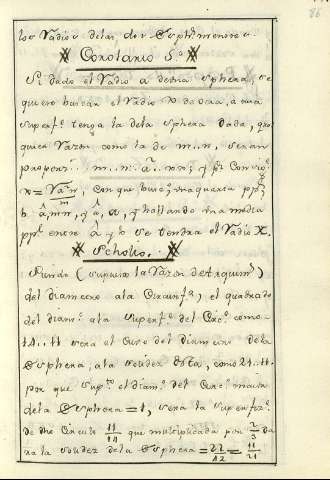 86
los Radios de las dos Spheras menores.
Corolario 5.º
Si dado el Radio a de una Sphera, se
quiere buscar el Radio x de otra, a cuia
superf.e tenga la dela Sphera dada, qual
quiera Razon, como la de m..n, seran
y por
x = , con que
b
entre à y b se tendra el Radio X.
Scholio.
Siendo (segun la Razon de Arquim.)
del diametro ala Circunf.a, el quadrado
del diam.º ala superf.e del Circ.º como
14..11 sera el Cubo del diametro dela
Sphera, ala solidez desta, como 21..11.
por que sup.to el diam.º del Circ.º maximo
dela Sphera = 1, sera la superfiz.e
de dho Circulo 11/14 que multiplicada por 2/3 da
ra la solidez dela Sphera = 22/42 = 11/21